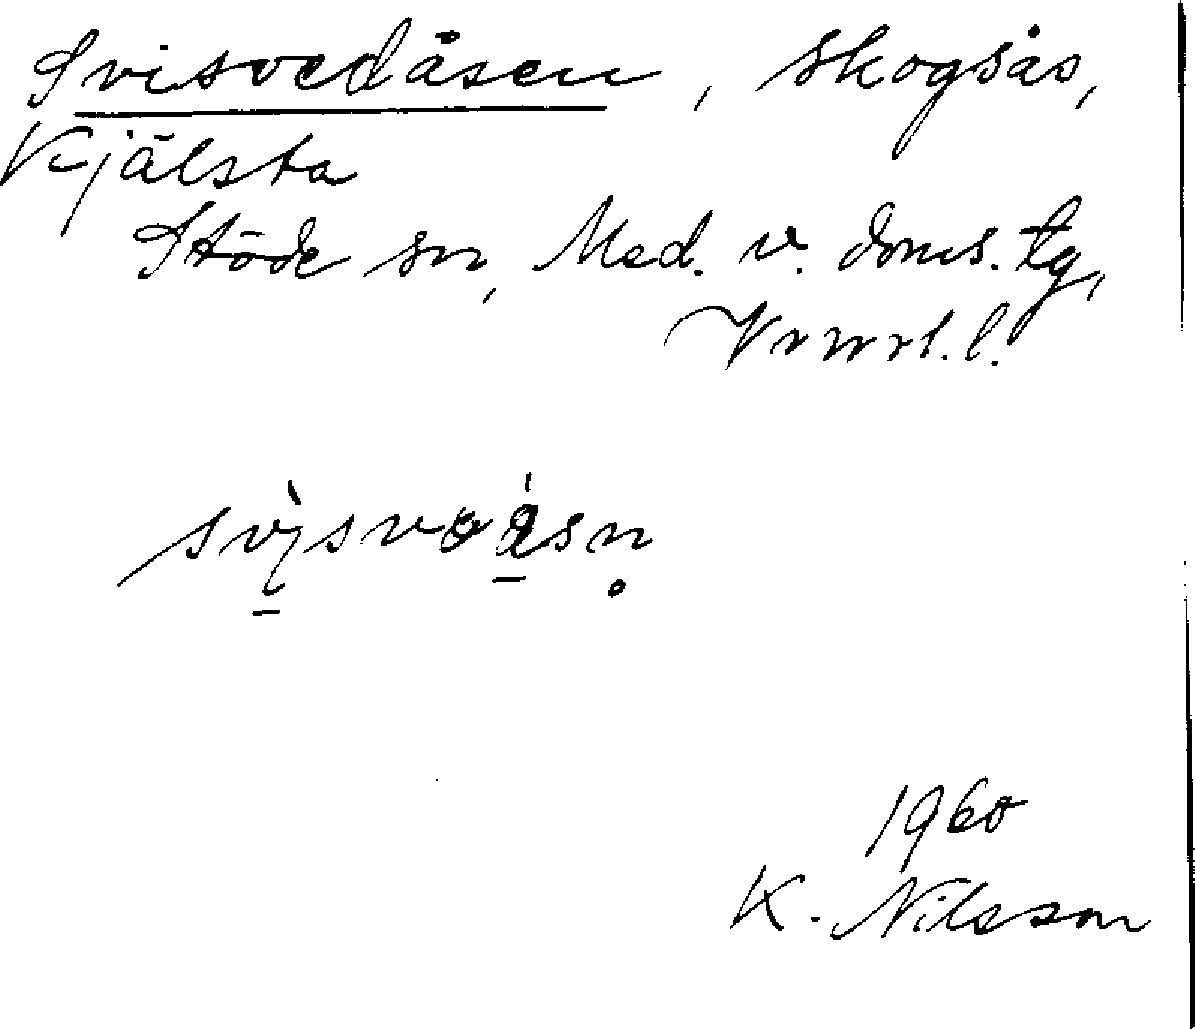 Svisvedåsen, skogsås,
Kjälsta
Stöde sn, Med. v. doms. tg,
Vnrrl. l.
1960
K. Nilsson